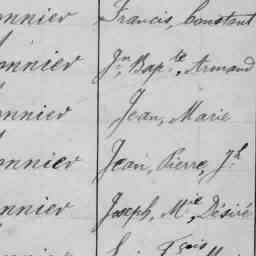 onnier Francis, Constant
onnier Jn, Bapte, Armand
onnier Jean, Marie
onnier Jean, Pierre, Jh
onnier Joseph, Mie, Désiré